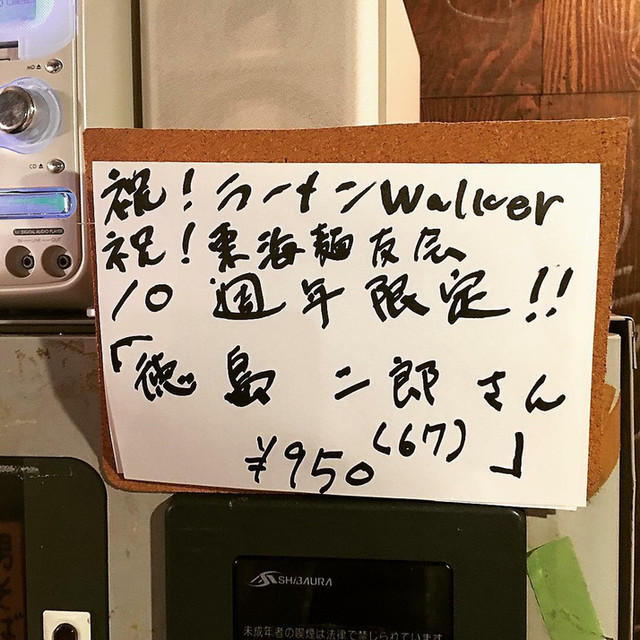 MD
CD
DIGITAL AUDIO PLAYER
IN LINE OUT
祝！ラーメンWalker
祝！東海麺友会
10週年限定!!
「徳島二郎さん
(67)」
¥950
SHIBAURA
未成年者の喫煙は法律で禁じられています